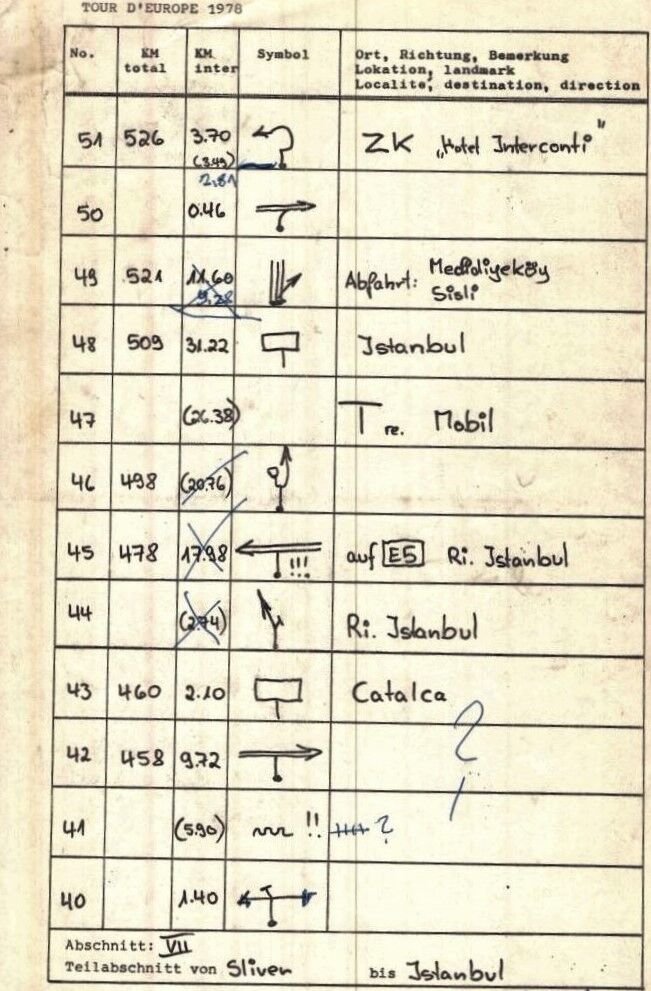 TOUR D'EUROPE 1978
No. KM total KM inter Symbol Ort, Richtung, Bemerkung
Lokation, landmark
Localite, destination, direction
51 526 3.70 ZK „Hotel Interconti"
(3.49)
2.81
50 0.46
49 521 11.60 Abfahrt: Medidiyeköy
9.28 Sisli
48 509 31.22 Istanbul
47 (26.38) T re. Mobil
46 498 (20.76)
45 478 17.98 !!! auf E5 Ri. Istanbul
44 (2.74) Ri. Istanbul
43 460 2.10 Catalca
?
42 458 9.72
41 (5.90) !! ?
40 1.40
Abschnitt: VII
Teilabschnitt von Sliven bis Istanbul